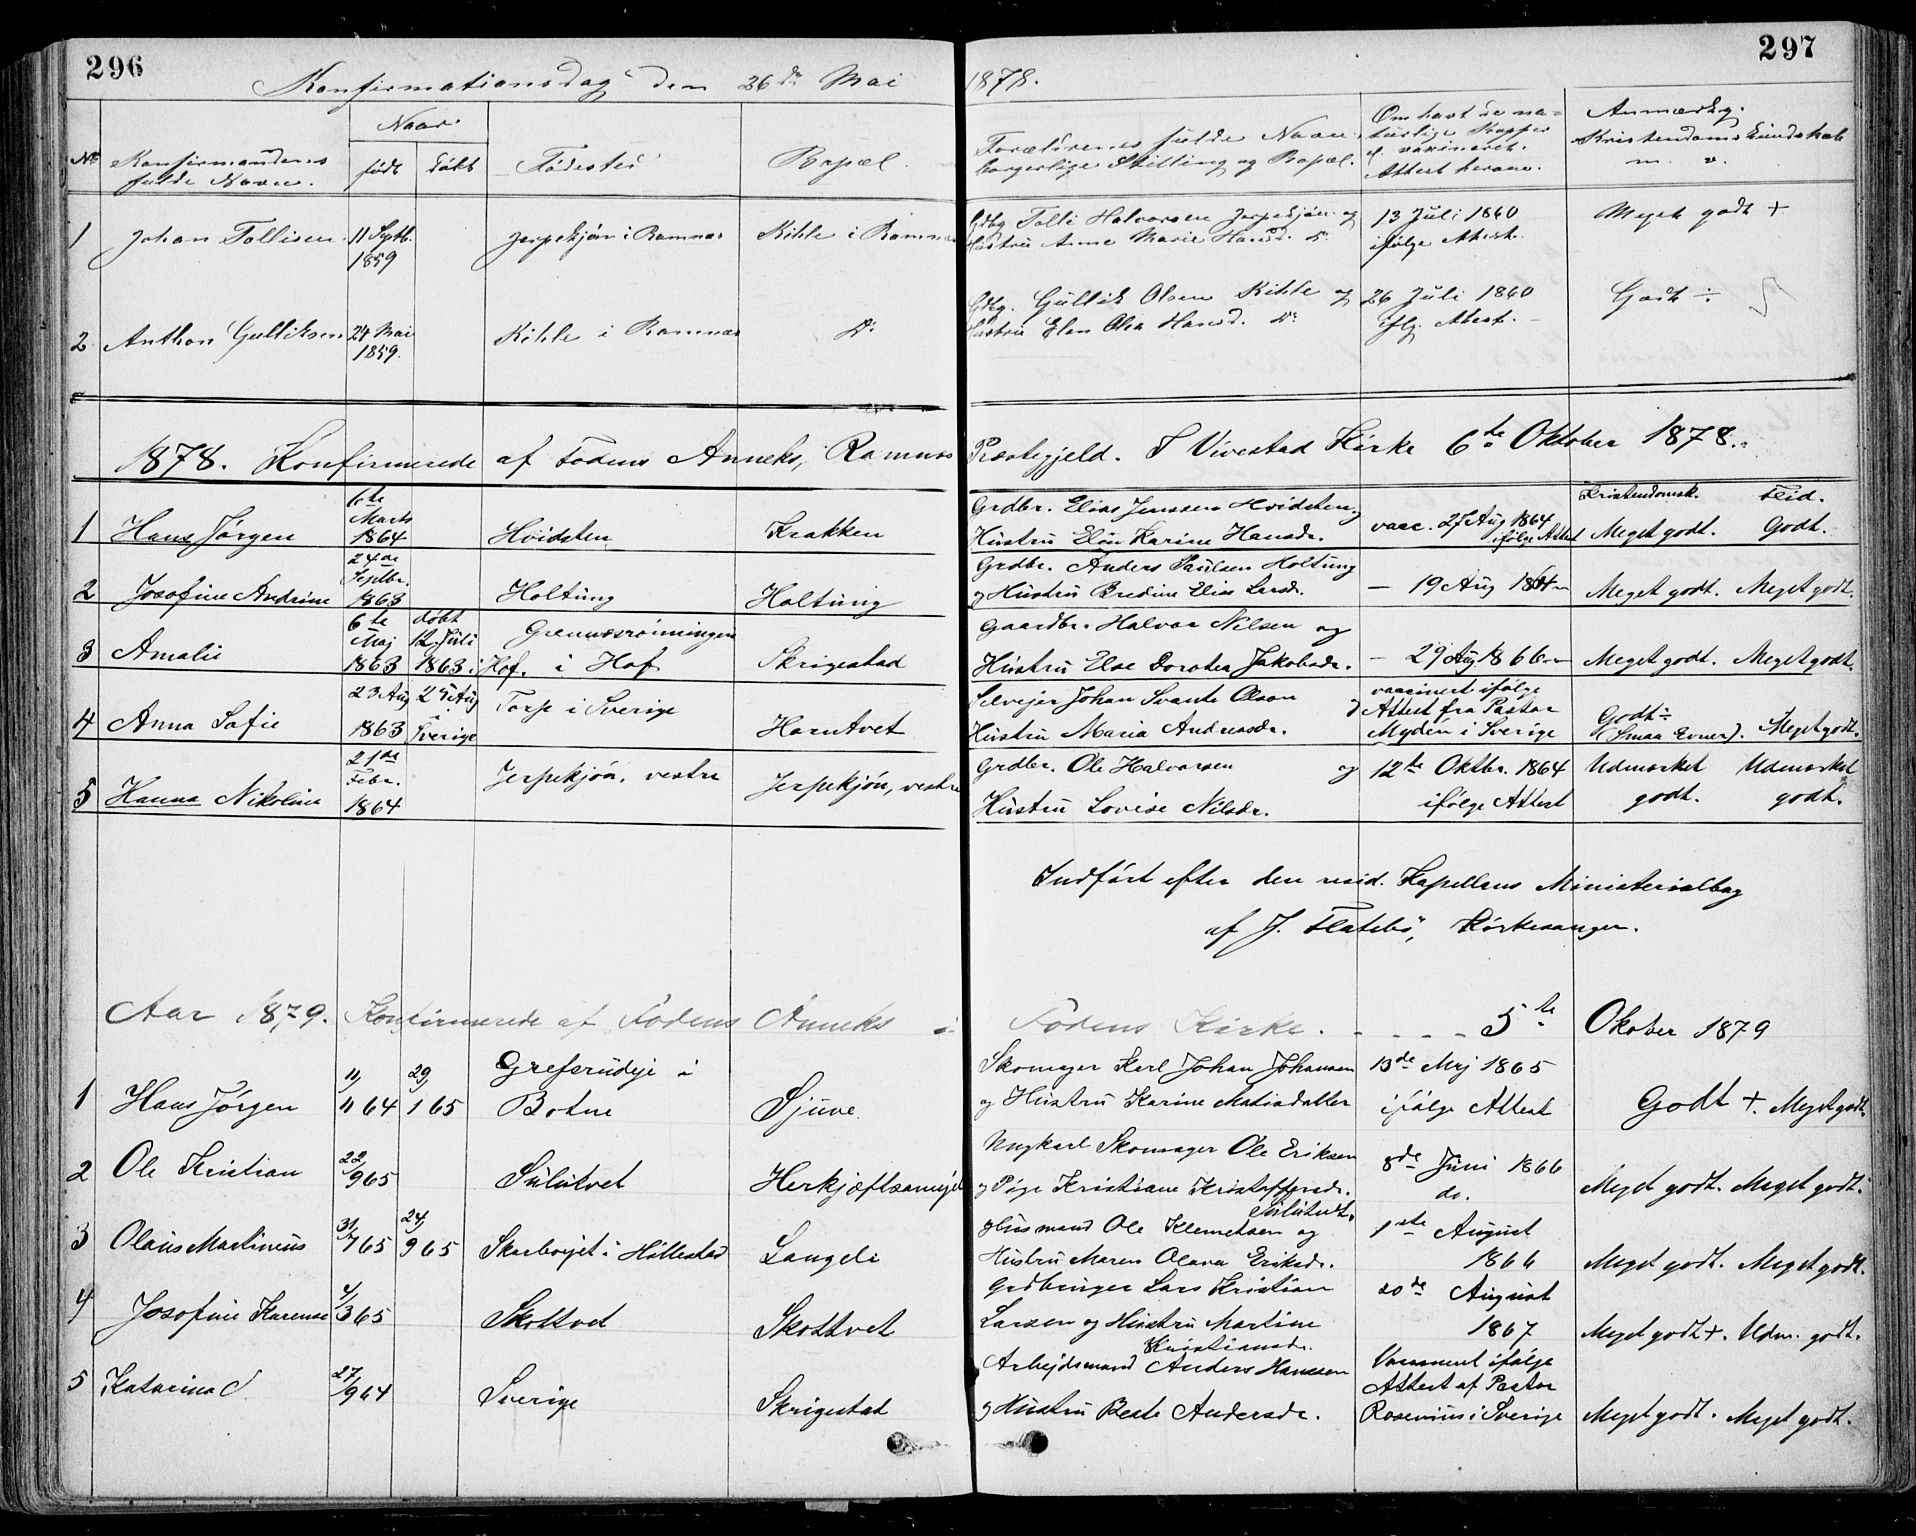 296
297
Konfirmationsdag den 26de Mai 1878.
Naar
No Konfirmandens fulde Navn. født døbt Fødested Bopæl.
Forældrenes fulde Navn, borgerlige Stilling og Bopæl.
Om havt de naturlige Kopper el. vaxineret. Attest herom.
Anmærkg. Kristendoms Kundskab m. v.
1 Johan Tollisen 11 Septb. 1859 Jerpekjøn i Ramnæs Kihle i Ramnæs
Gdbg Tolli Halvorsen Jerpekjøn og Hustru Anne Marie Hansd. do
13 Juli 1860 ifølge Attest. Meget godt +
2 Anthon Gulliksen 24 Mai 1859. Kihle i Ramnæs do
Gdbg. Gullik Olsen Kihle og Hustru Elen Olea Hansd. do
26 Juli 1860 iflg. Attest. Godt ÷
1878. Konfirmerede af Fodens Anneks, Ramnæs Præstegjeld. I Vivestad Kirke 6te Oktober 1878.
Kristendomsk. Flid.
1 Hans Jørgen 6te Marts 1864 Hvidsten Krakken
Grdbr. Elias Jenssen Hvidsten og
Hustru Elen Karine Hansdr.
vacc. 27 Aug 1864 ifølge Attest Meget godt. Godt.
2 Josefine Andrine 24de Septbr. 1863 Holtung Holtung
Grdbr. Anders Paulsen Holtung
og Hustru Bredine Elise Larsdr.
— 19 Aug 1864 — Meget godt. Meget godt.
3 Amalie 6te Maj 1863 døbt 12 Juli 1863 i Hof. Grennesrømningen i Hof Skrigestad
Gaardbr. Halvor Nilsen og
Hustru Else Dorotea Jakobsdr.
— 29 Aug 1866 — Meget godt. Meget godt.
4 Anna Sofie 23 Aug 1863 25 Aug i Sverige Torp i Sverige Horntvet
Selvejer Johan Svante Olson og
Hustru Maria Andreasdr.
vaccinert ifølge Attest fra Pastor Mydén i Sverige
Godt ÷ (Smaa Evner). Meget godt.
5 Hanna Nikoline 21de Febr. 1864 Jerpekjøn, vestre Jerpekjøn, vestre
Grdbr. Ole Halvorsen og
Hustru Lovise Nilsdr.
12te Oktbr. 1864 ifølge Attest Udmærket godt. Udmærket godt.
Indført efter den resid. Kapellans Ministerialbog
af J. Flatebø, Kirkesanger.
Aar 1879. Konfirmerede af Fodens Anneks i Fodens Kirke. - - - - 5te Okober 1879
1 Hans Jørgen 11/11 64 29/1 65 Grefsrudeje i Botne Sjuve
Skomager Karl Johan Johansen
og Hustru Karine Matisdatter
13de Maj 1865 ifølge Attest Godt +. Meget godt.
2 Ole Kristian 22/9 65 Sulutvet Herkjæftsameje
Ungkarl Skomager Ole Eriksen
og Pige Kristiane Kristoffersdr. Sulutvet.
8de Juni 1866 do. Meget godt. Meget godt.
3 Olaus Martinius 31/7 65 24/9 65 Skarborjet i Hillestad Langeli
Husmand Ole Klemetsen og
Hustru Maren Olava Eriksdr.
1ste August 1866 Meget godt. Meget godt.
4 Josefine Karense 4/3 65 Skottvet Skottvet
Grdbruger Lars Kristian
Larsen og Hustru Martine Kristiansdr.
20de August 1867 Meget godt +. Udm. godt.
5 Katarina C. 27/9 64 Sverige Skrigestad
Arbejdsmand Anders Hanssen
og Hustru Beate Andersdr.
Vaccinert ifølge Attest af Pastor Rosenius i Sverige Meget godt. Meget godt.